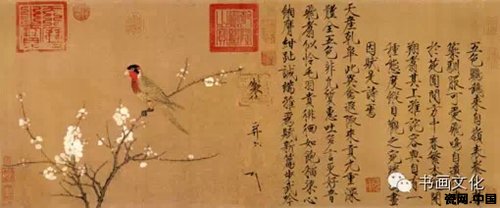 五色鸚鵡來自嶺表養之禁
籞馴服可愛飛鳴自適往來
於苑囿間方中春繁杏遍開
翔翥其上雅詫容與自有一
種態度縱目觀之宛勝圖畫
因賦是詩焉
天產乾皋此異禽遐陬來貢九重深
體全五色非凡質惠吐多言更好音
飛翥似怜毛羽貴徘徊如飽稻粱心
緗膺紺趾誠端雅為賦新篇步武吟
书画文化
瓷网.中国